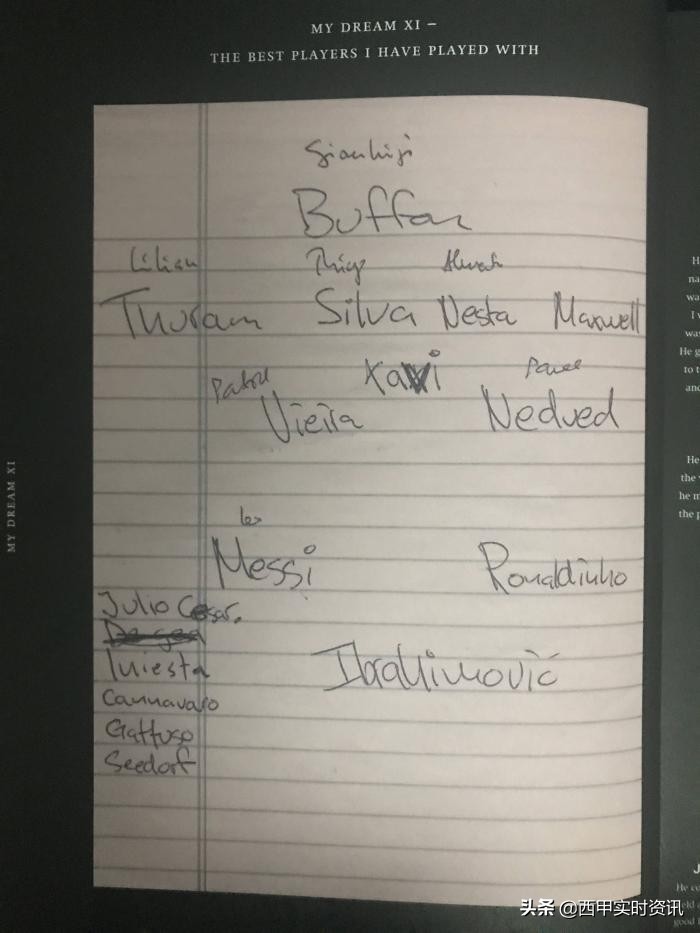 MY DREAM XI –
THE BEST PLAYERS I HAVE PLAYED WITH
Gianluigi
Buffon
Lilian Thiago
Thuram Silva Nesta Maxwell
Xavi
Vieira Nedved
Leo
Messi Ronaldinho
Julio Cesar.
Iniesta Ibrahimović
Cannavaro
Gattuso
Seedorf
MY DREAM XI
H
na
wa
I w
was
He g
to t
and
He
the
he m
the p
J
He co
头条 @西甲实时资讯